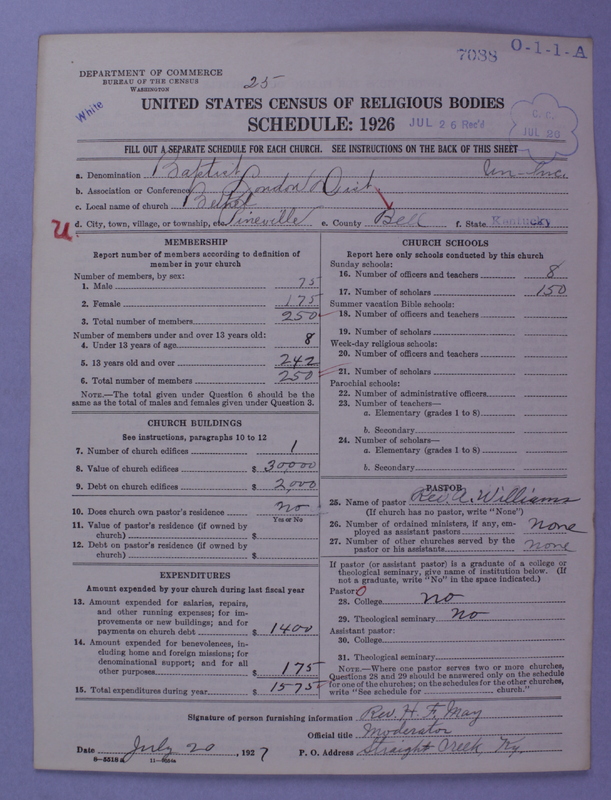 7038 O-1-1-A
DEPARTMENT OF COMMERCE
BUREAU OF THE CENSUS
WASHINGTON
25
White
UNITED STATES CENSUS OF RELIGIOUS BODIES
SCHEDULE: 1926
JUL 26 Rec'd
C.C.
JUL 26
FILL OUT A SEPARATE SCHEDULE FOR EACH CHURCH. SEE INSTRUCTIONS ON THE BACK OF THIS SHEET
a. Denomination Baptist Un-Inc.
b. Association or Conference London Dist
c. Local name of church Bethel
U d. City, town, village, or township, etc. Pineville e. County Bell f. State Kentucky
MEMBERSHIP
Report number of members according to definition of
member in your church
Number of members, by sex:
1. Male 75
2. Female 175
3. Total number of members 250
Number of members under and over 13 years old:
4. Under 13 years of age 8
5. 13 years old and over 242
6. Total number of members 250
NOTE.—The total given under Question 6 should be the
same as the total of males and females given under Question 3.
CHURCH BUILDINGS
See instructions, paragraphs 10 to 12
7. Number of church edifices 1
8. Value of church edifices $ 30,000
9. Debt on church edifices $ 2,000
10. Does church own pastor's residence? no
Yes or No
11. Value of pastor's residence (if owned by
church) $
12. Debt on pastor's residence (if owned by
church) $
EXPENDITURES
Amount expended by your church during last fiscal year
13. Amount expended for salaries, repairs,
and other running expenses; for im-
provements or new buildings; and for
payments on church debt $ 1400
14. Amount expended for benevolences, in-
cluding home and foreign missions; for
denominational support; and for all
other purposes $ 175
15. Total expenditures during year $ 1575
CHURCH SCHOOLS
Report here only schools conducted by this church
Sunday schools:
16. Number of officers and teachers 8
17. Number of scholars 150
Summer vacation Bible schools:
18. Number of officers and teachers
19. Number of scholars
Week-day religious schools:
20. Number of officers and teachers
21. Number of scholars
Parochial schools:
22. Number of administrative officers
23. Number of teachers—
a. Elementary (grades 1 to 8)
b. Secondary
24. Number of scholars—
a. Elementary (grades 1 to 8)
b. Secondary
PASTOR
25. Name of pastor Rev. A. Williams
(If church has no pastor, write "None")
26. Number of ordained ministers, if any, em-
ployed as assistant pastors none
27. Number of other churches served by the
pastor or his assistants none
If pastor (or assistant pastor) is a graduate of a college or
theological seminary, give name of institution below. (If
not a graduate, write "No" in the space indicated.)
Pastor: O
28. College no
29. Theological seminary no
Assistant pastor:
30. College
31. Theological seminary
NOTE.—Where one pastor serves two or more churches,
Questions 28 and 29 should be answered only on the schedule
for one of the churches; on the schedules for the other churches,
write "See schedule for church."
Signature of person furnishing information Rev. H. F. May
Official title Moderator
Date July 20, 1927 P. O. Address Straight Creek, Ky.
8-5518 a 11-8054a